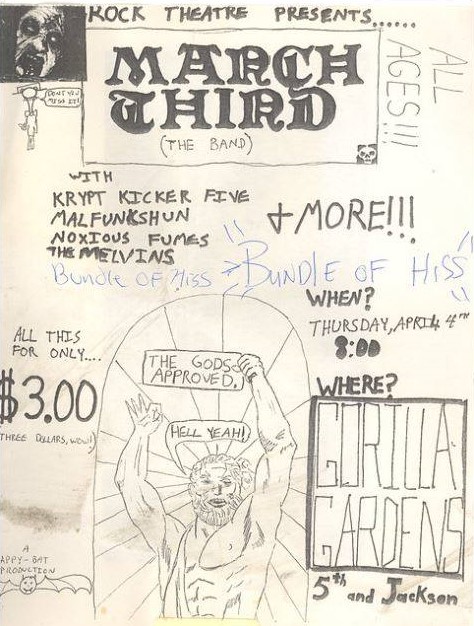 ROCK THEATRE PRESENTS......
DON'T YOU MISS IT!
MARCH
THIRD
(THE BAND)
ALL
AGES!!!
WITH
KRYPT KICKER FIVE
MALFUNKSHUN
NOXIOUS FUMES
THE MELVINS
Bundle OF Hiss
& MORE!!!
"BUNDLE OF HISS"
WHEN?
THURSDAY, APRIL 4TH
8:00
ALL THIS
FOR ONLY....
$3.00
THREE DOLLARS, WOW!
THE GODS
APPROVED.
HELL YEAH!
WHERE?
GORILLA
GARDENS
5th and Jackson
A
APPY-BAT
PRODUCTION